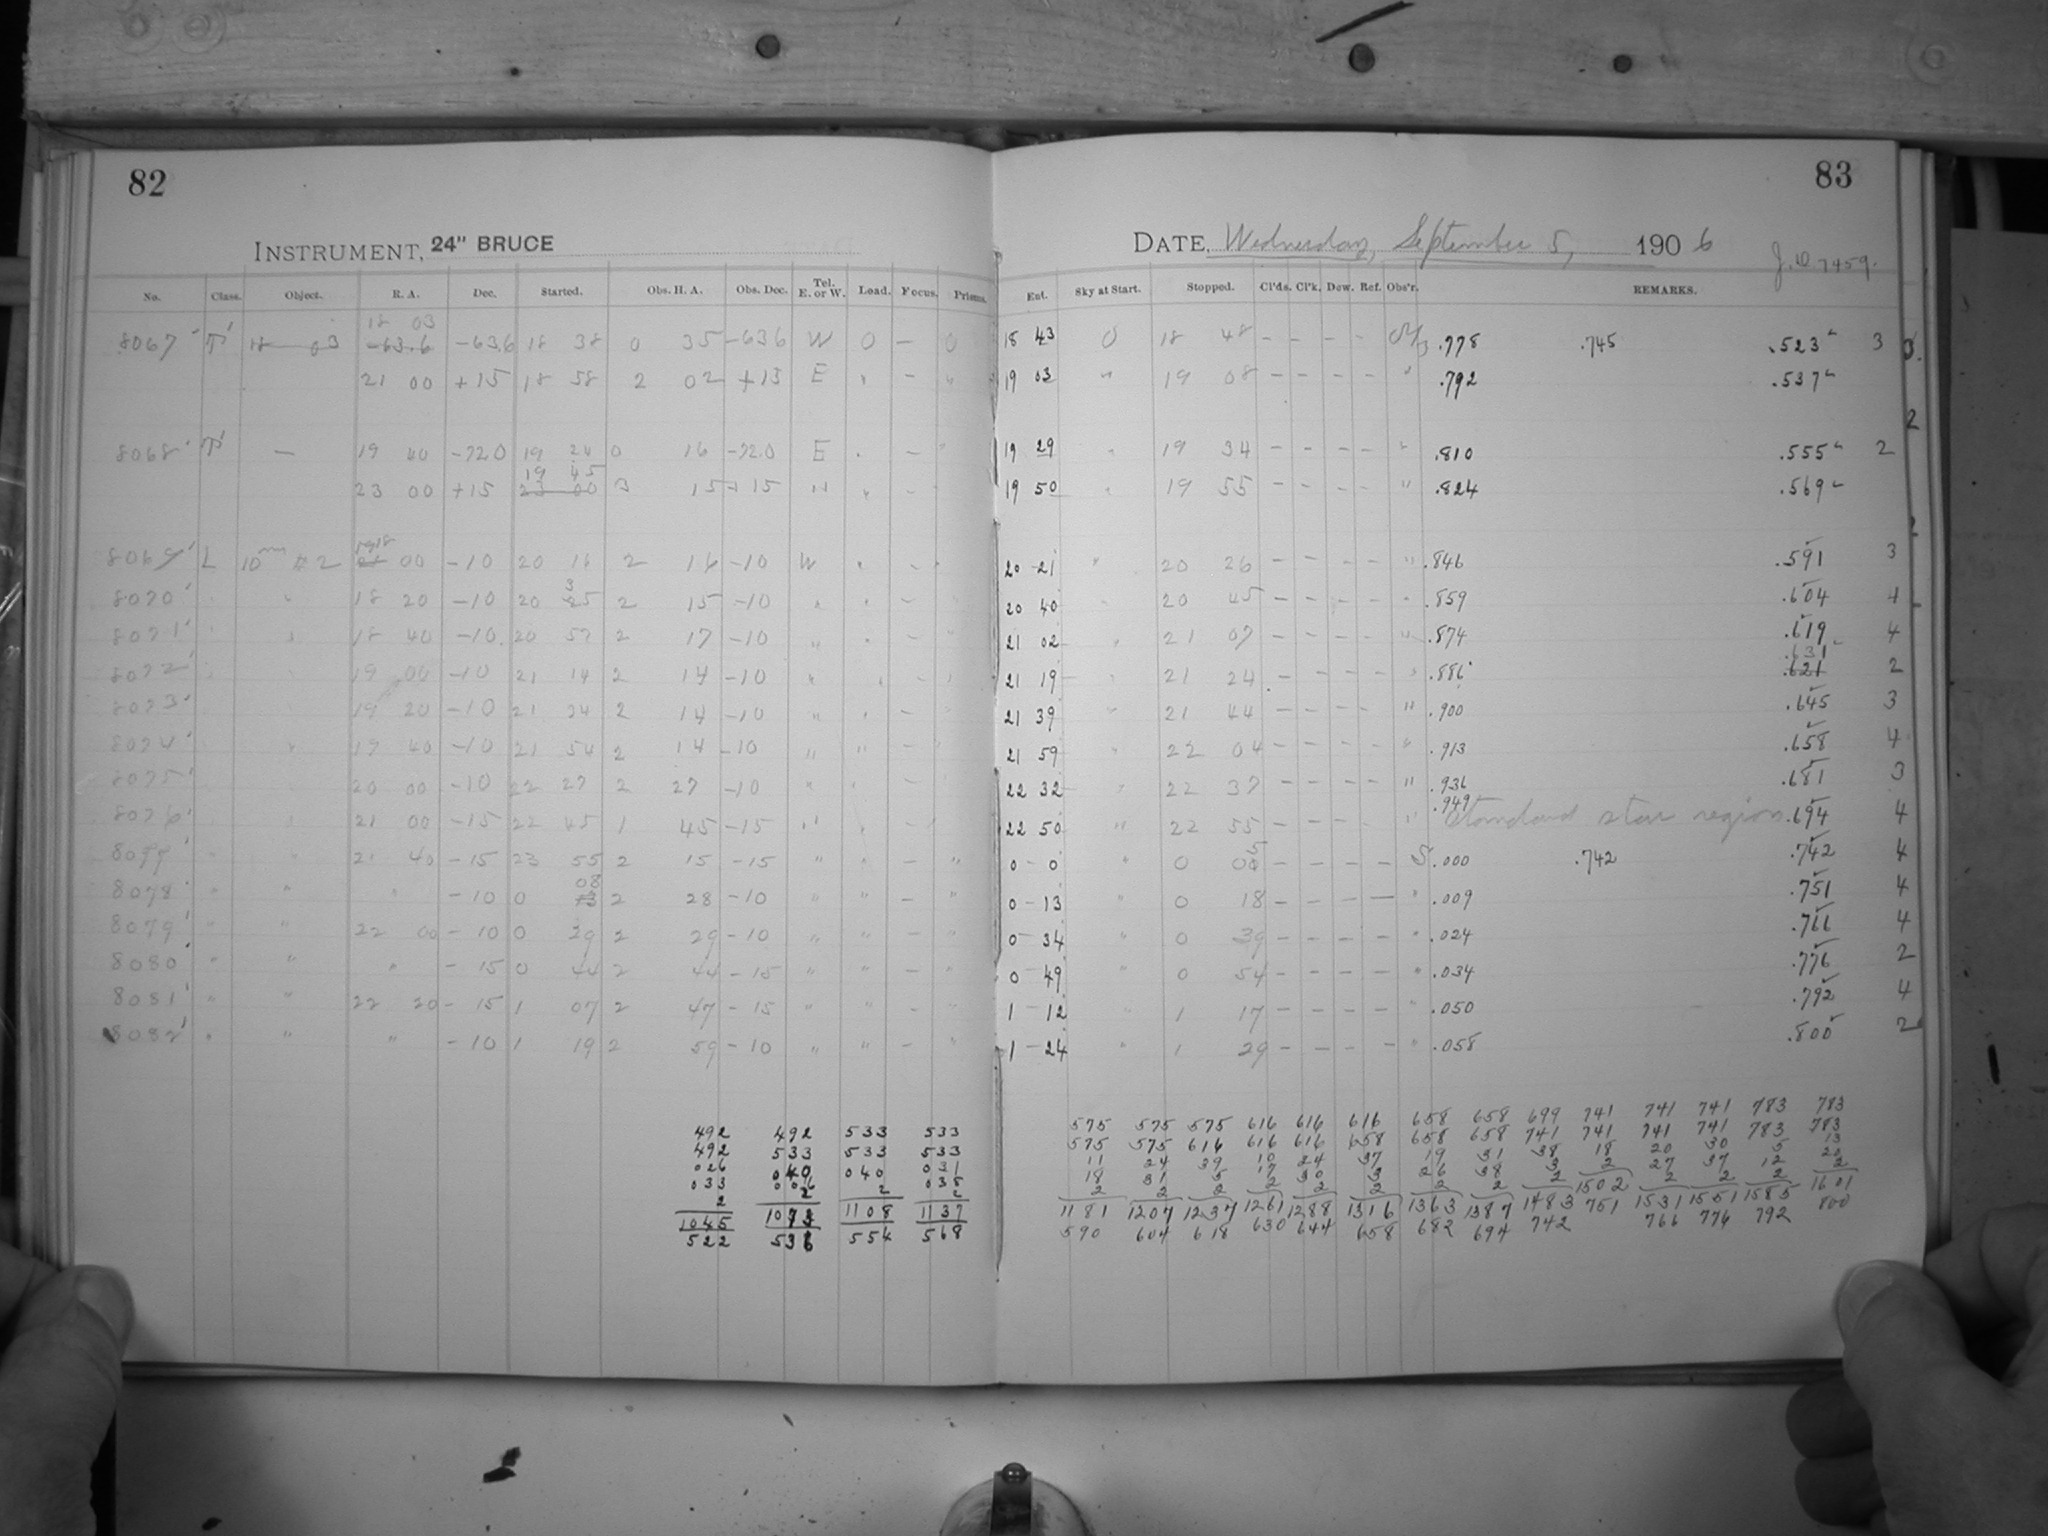 82
83
INSTRUMENT, 24" BRUCE
DATE, Wednesday, September 5, 1906
J.D. 7459.
No. Class. Object. R. A. Dec. Started. Obs. H. A. Obs. Dec. Tel. E. or W. Load. Focus. Prisms. Ent. Sky at Start. Stopped. Cl'ds. Cl'k. Dew. Ref. Obs'r. REMARKS.
18 03
8067 18 03 -63.6 -63.6 18 38 0 35 -636 W 0 - 0 18 43 0 18 48 - - - - .778 .745 .523 3
21 00 +15 18 58 2 02 +15 E " - " 19 03 " 19 08 - - - - " .792 .537
8068 — 19 40 -72.0 19 24 0 16 -72.0 E " - " 19 29 " 19 34 - - - - " .810 .555 2
19 45
23 00 +15 23 00 3 15 +15 " " - " 19 50 " 19 55 - - - - " .824 .569
8069 L 10m #2 00 -10 20 16 2 16 -10 W " - " 20 21 " 20 26 - - - - " .846 .591 3
8070 " " 18 20 -10 20 35 2 15 -10 " " - " 20 40 " 20 45 - - - - " .859 .604 4
8071 " " 18 40 -10 20 57 2 17 -10 " " - " 21 02 " 21 07 - - - - " .874 .619 4
.631
8072 " " 19 00 -10 21 14 2 14 -10 " " - " 21 19 " 21 24 - - - - " .886 .621 2
8073 " " 19 20 -10 21 34 2 14 -10 " " - " 21 39 " 21 44 - - - - " .900 .645 3
8074 " " 19 40 -10 21 54 2 14 -10 " " - " 21 59 " 22 04 - - - - " .913 .658 4
8075 " " 20 00 -10 22 27 2 27 -10 " " - " 22 32 " 22 37 - - - - " .936 .681 3
8076 " " 21 00 -15 22 45 1 45 -15 " " - " 22 50 " 22 55 - - - - " .949 Standard star region .694 4
8077 " " 21 40 -15 23 55 2 15 -15 " " - " 0 0 " 0 05 - - - - S .000 .742 .742 4
08
8078 " " " -10 0 13 2 28 -10 " " - " 0 13 " 0 18 - - - - " .009 .751 4
8079 " " 22 00 -10 0 29 2 29 -10 " " - " 0 34 " 0 39 - - - - " .024 .766 4
8080 " " " -15 0 44 2 44 -15 " " - " 0 49 " 0 54 - - - - " .034 .776 2
8081 " " 22 20 -15 1 07 2 47 -15 " " - " 1 12 " 1 17 - - - - " .050 .792 4
8082 " " " -10 1 19 2 59 -10 " " - " 1 24 " 1 29 - - - - " .058 .800 2
492 492 533 533 575 575 575 616 616 616 658 658 699 741 741 741 783 783
492 533 533 533 575 575 616 616 616 658 658 658 741 741 741 741 783 783
026 040 040 031 11 24 39 10 24 37 19 31 38 18 20 30 5 13
033 006 038 18 31 5 17 30 3 26 38 3 2 27 37 12
2 2 2 2 2 2 2 2 2 2 2 2 2 2 2 2 2
1045 1073 1108 1137 1181 1207 1237 1261 1288 1316 1363 1387 1483 1502 1531 1551 1585 1601
522 536 554 568 590 604 618 630 644 658 682 694 742 751 766 776 792 800